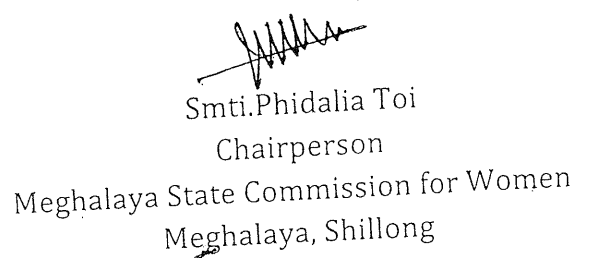 Smti.Phidalia Toi
Chairperson
Meghalaya State Commission for Women
Meghalaya, Shillong